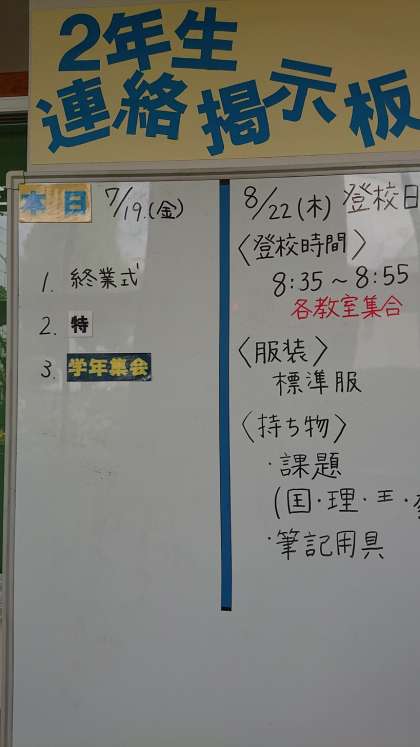 2年生
連絡掲示板
本日 7/19.(金)
1. 終業式
2. 特
3. 学年集会
8/22(木) 登校日
〈登校時間〉
8:35～8:55
各教室集合
〈服装〉
標準服
〈持ち物〉
・課題
(国・理・
・筆記用具